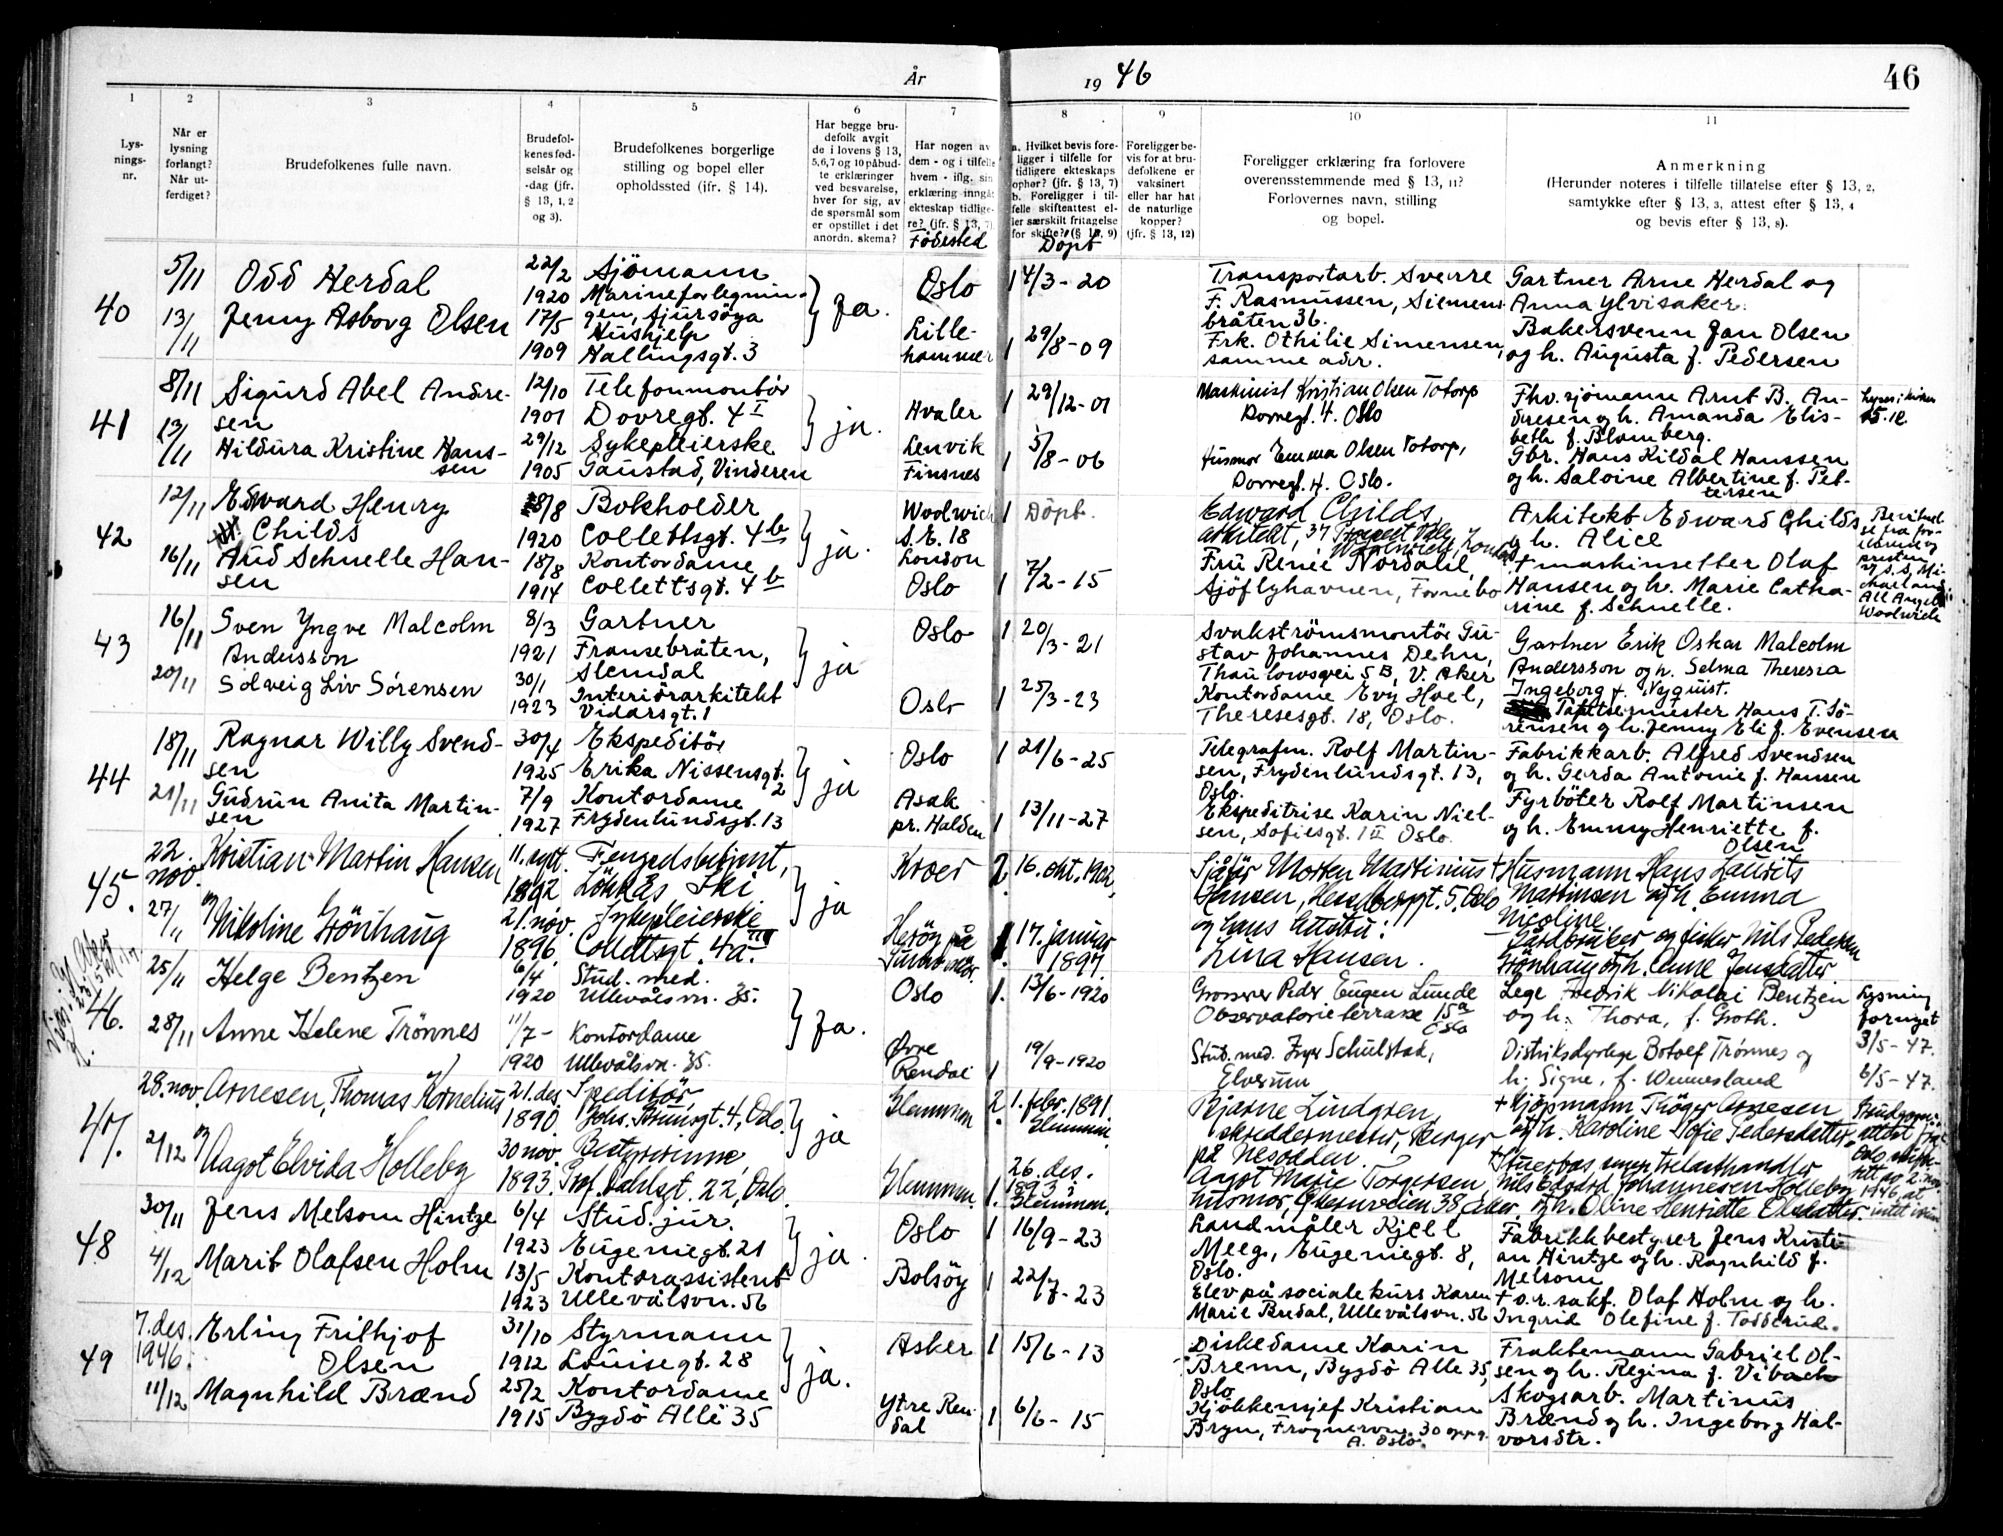 År
19 46
46
1
2
3
4
5
6
7
8
9
10
11
Lys-
nings-
nr.
Når er
lysning
forlangt?
Når ut-
ferdiget?
Brudefolkenes fulle navn.
Brudefol-
kenes fød-
selsår og
-dag (jfr.
§ 13, 1, 2
og 3).
Brudefolkenes borgerlige
stilling og bopel eller
opholdssted (jfr. § 14).
Har begge bru-
defolk avgit
de i lovens § 13,
5, 6, 7 og 10 påbud-
te erklæringer
ved besvarelse,
hver for sig, av
de spørsmål som
er opstillet i det
anordn. skema?
Har nogen av
dem - og i tilfelle
hvem - iflg. sin
erklæring inngåt
ekteskap tidlige-
re? (jfr. § 13, 7)
Födested
a. Hvilket bevis fore-
ligger i tilfelle for
tidligere ekteskaps
ophør? (jfr. § 13, 7)
b. Foreligger i til-
felle skifteattest el-
ler særskilt fritagelse
for skifte? (§ 13, 9)
Döpt
Foreligger be-
vis for at bru-
defolkene er
vaksinert
eller har hat
de naturlige
kopper?
(jfr. § 13, 12)
Foreligger erklæring fra forlovere
overensstemmende med § 13, 11?
Forlovernes navn, stilling
og bopel.
Anmerkning
(Herunder noteres i tilfelle tillatelse efter § 13, 2,
samtykke efter § 13, 3, attest efter § 13, 4
og bevis efter § 13, 8).
40
5/11
13/11
Odd Herdal
Jenny Asborg Olsen
22/2
1920
17/5
1909
Sjömann
Marineforlegnin-
gen, Sjursöya
Hushjelp
Hallingsgt. 3
ja.
Oslo
Lille-
hammer
1 4/3-20
1 29/8-09
Transportarb. Sverre
F. Rasmussen, Simens-
bråten 36.
Frk. Othilie Simensen,
samme adr.
Gartner Arne Herdal og
Anna Ylvisaker.
Bakersvenn Jan Olsen
og h. Augusta f. Pedersen
41
8/11
13/11
Sigurd Abel Andre-
sen
Hildura Kristine Hans-
sen
12/10
1901
29/12
1905
Telefonmontör
Dovregt. 4 I
Sykepleierske
Gaustad, Vinderen
ja.
Hvaler
Lenvik
Finsnes
1 29/12-01
1 5/8-06
Maskinist Kristian Olsen Totorp
Dovregt. 4. Oslo
Husmor Emma Olsen Totorp,
Dovregt. 4. Oslo.
Fhv. sjömann Arnt B. An-
dresen og h. Amanda Elis-
beth f. Blomberg.
Gbr. Hans Kildal Hanssen
og h. Salvine Albertine f. Pet-
tersen
42
12/11
16/11
Edward Henry
Childs
Aud Schnelle Han-
sen
8/8
1920
18/8
1914
Bokholder
Collettsgt. 4 b
Kontordame
Collettsgt. 4 b
ja.
Woolwich
S.E. 18
London
Oslo
1 Döpt.
1 7/2-15
Edward Childs,
arkitekt, 37
Woolwich, London
Fru Reneé Nordahl,
Sjöflyhavnen, Fornebo
Arkitekt Edward Childs
og h. Alice
+ maskinsetter Olaf
Hansen og h. Marie Catha-
rine f. Schnelle.
All Angels
Woolwich
43
16/11
20/11
Sven Yngve Malcolm
Andersson
Solveig Liv Sörensen
8/3
1921
30/1
1923
Gartner
Fransebråten,
Slemdal
Interiörarkitekt
Vidarsgt. 1
ja
Oslo
Oslo
1 20/3-21
1 25/3-23
Svakströmsmontör Gu-
stav Johannes Dehn,
Thaulowsvei 5 B, V. Aker
Kontordame Evy Hoel,
Theresesgt. 18, Oslo.
Gartner Erik Oskar Malcolm
Andersson og h. Selma Theresia
Ingeborg f. Nyquist.
Tapetsermester Hans T. Sö-
rensen og h. Jenny Eli f. Evensen
44
18/11
21/11
Ragnar Willy Svend-
sen
Gudrun Anita Martin-
sen
30/4
1925
7/9
1927
Ekspeditör
Erika Nissensgt.
2
Kontordame
Frydenlundsgt. 13
ja
Oslo
Asak
pr. Halden
1 21/6-25
1 13/11-27
Telegrafm. Rolf Martin-
sen, Frydenlundsgt. 13,
Oslo.
Ekspeditrise Karin Niel-
sen, Sofiesgt. 1 II Oslo.
Fabrikkarb. Alfred Svendsen
og h. Gerda Antonie f. Hansen
Fyrböter Rolf Martinsen
og h. Emmy Henriette f.
Olsen
45.
22.
nov.
27/11
Kristian Martin Hansen
og
Nikoline Grönhaug
11. sept.
1892
21. nov.
1896.
Fengselsbetjent,
Ski
Sykepleierske
Collettsgt. 4a III
ja
Kroer
Heröy på
2. 16. okt. 1902,
1. 17. januar
1897.
Sjåfør Morten Martinius
Hansen, Hesselbergsgt. 5, Oslo
og hans hustru:
Lina Hansen.
+ Husmann Hans Laurits
Martinsen og h. Emma
Nicoline
Gårdbruker og fisker Nils Pedersen
Grönhaug og h. Anne Jensdatter
46.
25/11
28/11
Helge Bentzen
Anne Helene Trönnes
6/4
1920
11/7-
1920
Stud. med.
Ullevålsvn. 35.
Kontordame
Ullevålsvn. 35.
Ja.
Oslo
Øvre
Rendal
1. 13/6-1920
1 19/9-1920
Grosserer Peder Eugen Lunde
Observatorie terrasse 15a
Oslo
Stud. med. Inger Schulstad,
Elverum
Lege Fredrik Nikolai Bentzen
og h. Thora, f. Groth.
Distriktsdyrlege Botolf Trönnes og
h. Signe, f. Wennesland
Lysning
fornyet
3/5-47.
6/5-47.
47.
28. nov.
2/12
Arnesen, Thomas Kornelius
og
Aagot Elvida Holleby
21. des.
1890
30 nov.
1893.
Speditör
Johs. Brunsgt. 4, Oslo.
Bestyrerinne
Prof. Dahlsgt. 22, Oslo.
ja
Glemmen
Glemmen.
2. 1. febr. 1891.
Glemmen
1. 26. des.
1893 i
Glemmen.
Bjarne Lindgren,
skreddermester, Berger
på Nesodden.
Aagot Marie Torgersen
husmor, Ekernveien 38 Aker.
+ Kjöpmann Thöger Arnesen
og h. Karoline Sofie Pedersdatter.
+ Stuerbas, senere trelasthandler
Nils Edvard Johannesen Holleby
og h. Oline Henriette Olsdatter.
48.
30/11
4/12
Jens Melsom Hintze
Marit Olafsen Holm
6/4
1923
13/5
1923
Stud. jur.
Eugeniegt. 21
Kontorassistent
Ullevålsvn. 56
ja.
Oslo
Bolsöy
1 16/9-23
1 22/7-23
Landmåler Kjell
Meeg, Eugeniegt. 8,
Oslo.
Elev på sociale kurs Karen
Marie Bredal, Ullevålsvn. 56
Fabrikkbestyrer Jens Kristi-
an Hintze og h. Ragnhild f.
Melsom
+ o.r. sakf. Olaf Holm og h.
Ingrid Olefine f. Todderud.
49
7. des.
1946.
11/12
Erling Frithjof
Olsen
Magnhild Brænd
31/10
1912
25/2
1915
Styrmann
Louisegt. 28
Kontordame
Bygdö Allé 35
ja.
Asker
Ytre Ren-
dal
1 15/6-13
1 6/6-15
Diskedame Karin
Brenn, Bygdö Alle 35,
Oslo
Kjökkensjef Kristian
Bryn, Frognervn. 30 oppg.
A. Oslo.
Fraktemann Gabriel Ol-
sen og h. Regina f. Vibach
Skogsarb. Martinus
Brænd og h. Ingeborg Hal-
vorsdtr.